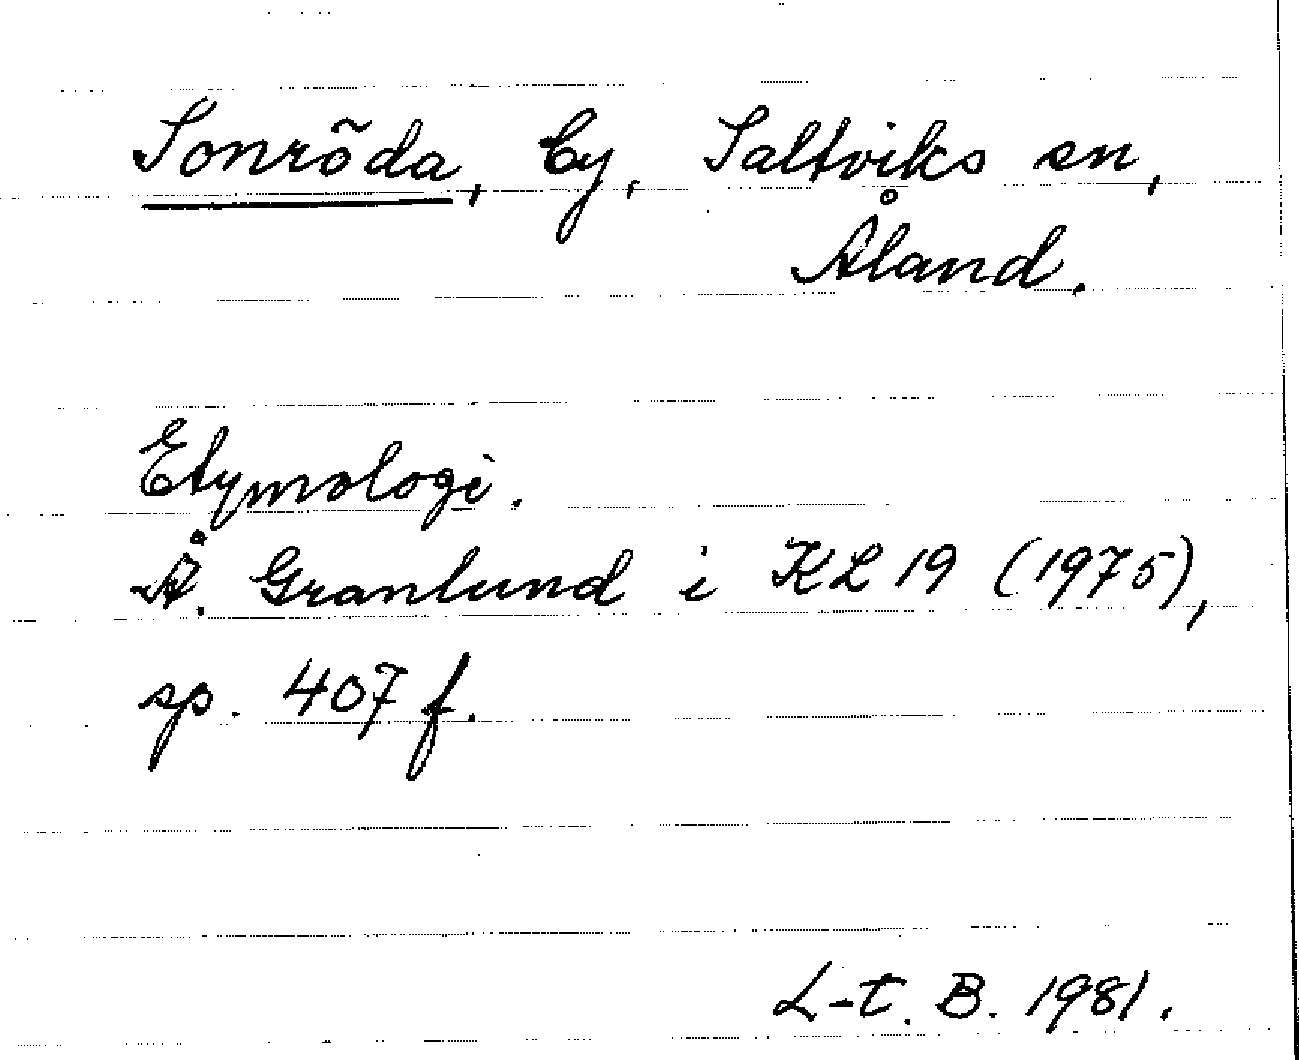 Sonröda, by, Saltviks sn,
Åland.
Etymologi.
Å. Granlund i KL 19 (1975),
sp. 407 f.
L-t. B. 1981.